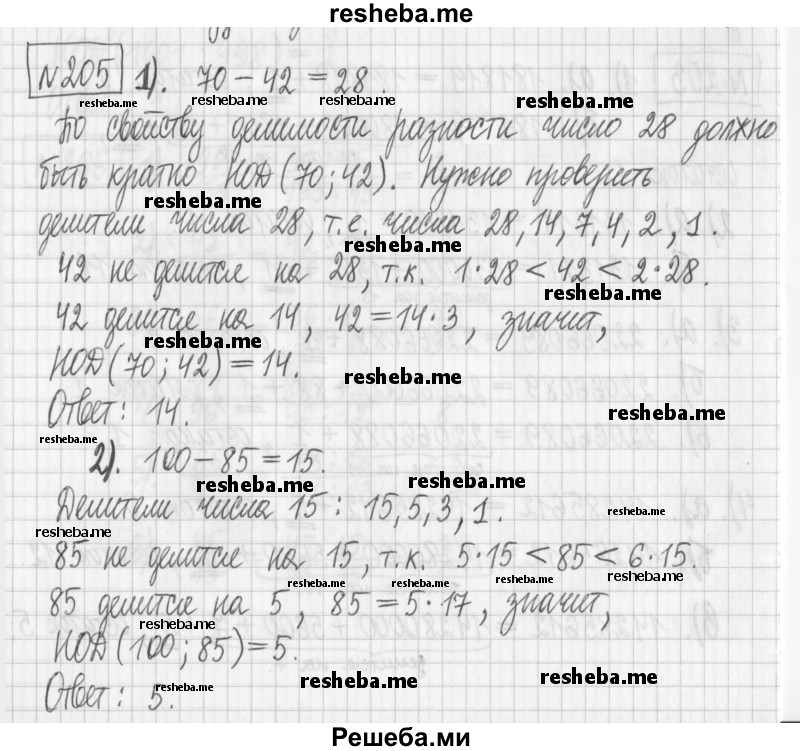 resheba.me
№205 1). 70 – 42 = 28.
resheba.me resheba.me resheba.me resheba.me
По свойству делимости разности число 28 должно
быть кратно НОД(70; 42). Нужно проверить
resheba.me
делители числа 28, т.е. числа 28, 14, 7, 4, 2, 1.
resheba.me
42 не делится на 28, т.к. 1·28 < 42 < 2·28.
resheba.me
42 делится на 14, 42 = 14·3, значит,
resheba.me
НОД(70; 42) = 14.
resheba.me
Ответ: 14.
resheba.me
resheba.me
2). 100 – 85 = 15.
resheba.me resheba.me
Делители числа 15: 15, 5, 3, 1.
resheba.me
resheba.me
85 не делится на 15, т.к. 5·15 < 85 < 6·15.
resheba.me resheba.me resheba.me
85 делится на 5, 85 = 5·17, значит,
resheba.me
НОД(100; 85) = 5.
resheba.me resheba.me
Ответ: 5.
resheba.me
Решеба.ми